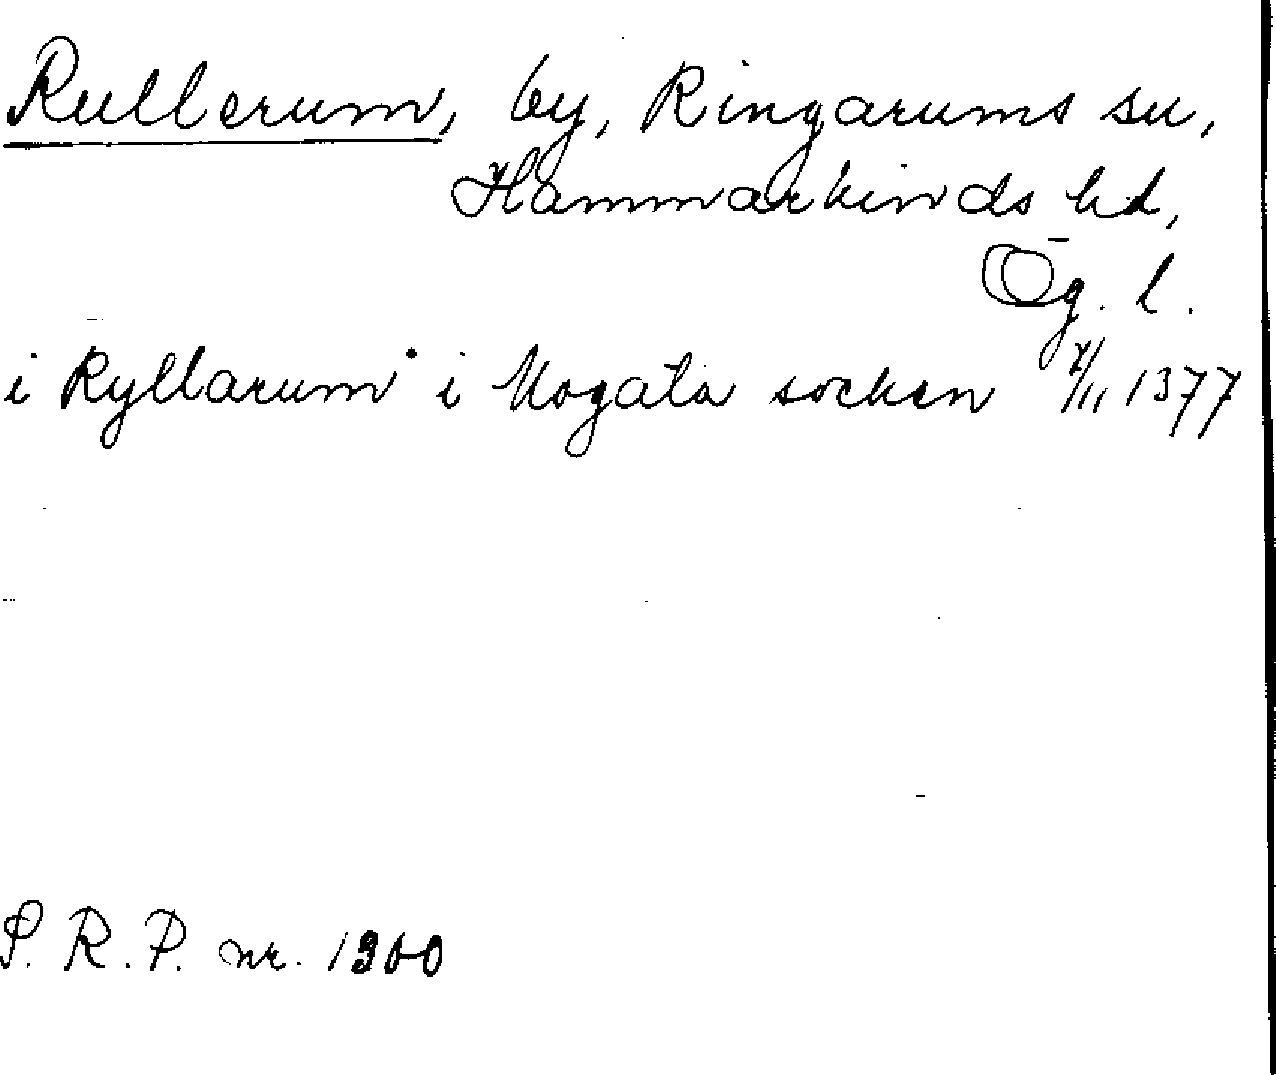 Rullerum, by, Ringarums sn,
Hammarkinds hd,
Ög. l.
i Ryllarum i Mogata socken 4/11 1377
S. R. P. nr. 1300